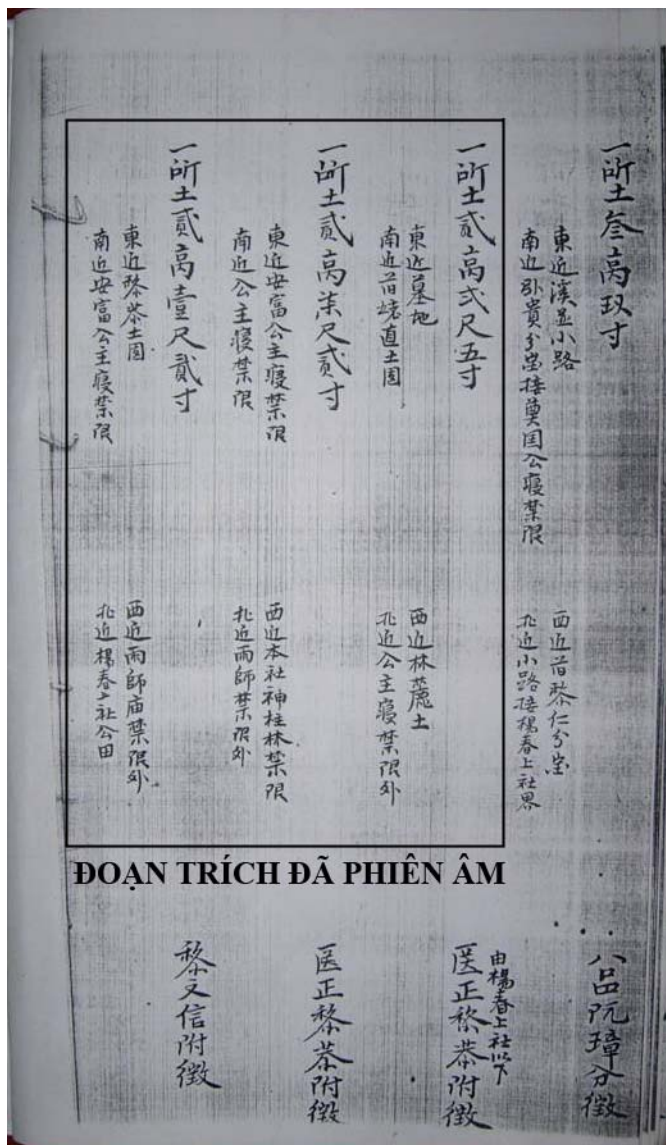 一所土叁高玖寸
東近溪並小路
南近 貴分 接奠国公寝禁限
西近 黎仁分
北近小路接楊春上社界
八品阮璋分徵
一所土贰高弍尺五寸
東近墓地
南近 直土園
西近林麓土
北近公主寝禁限外
由楊春上社以下
医正黎恭附徵
一所土贰高柒尺贰寸
東近安富公主寝禁限
南近公主寝禁限
西近本社神柱林禁限
北近雨師禁限外
医正黎恭附徵
一所土贰高壹尺贰寸
東近黎恭土園
南近安富公主寝禁限
西近雨師庙禁限外
北近楊春上社公田
黎文信附徵
ĐOẠN TRÍCH ĐÃ PHIÊN ÂM